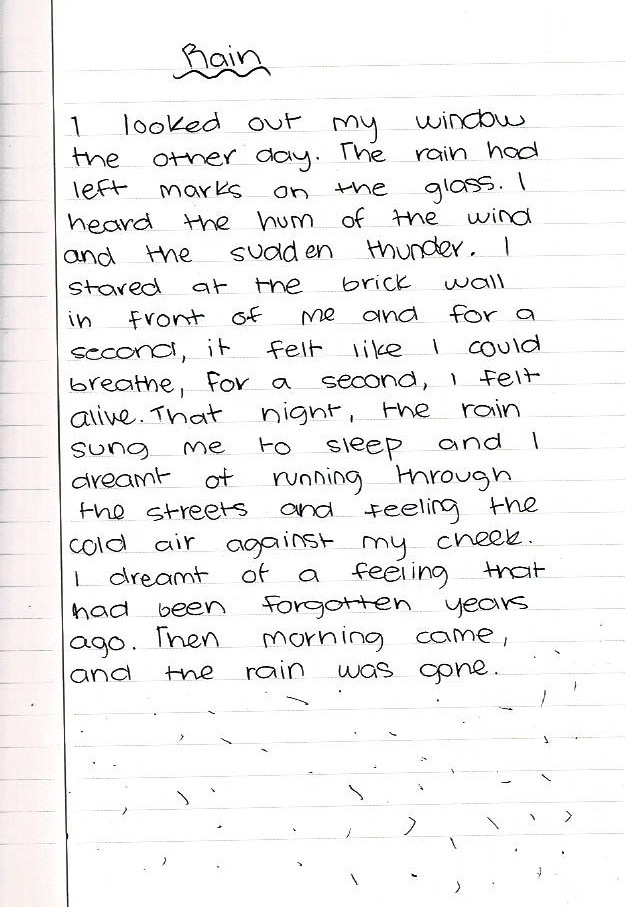 Rain
I looked out my window
the other day. The rain had
left marks on the glass. I
heard the hum of the wind
and the sudden thunder. I
stared at the brick wall
in front of me and for a
second, it felt like I could
breathe, for a second, i felt
alive. That night, the rain
sung me to sleep and I
dreamt of running through
the streets and feeling the
cold air against my cheek.
I dreamt of a feeling that
had been forgotten years
ago. Then morning came,
and the rain was gone.